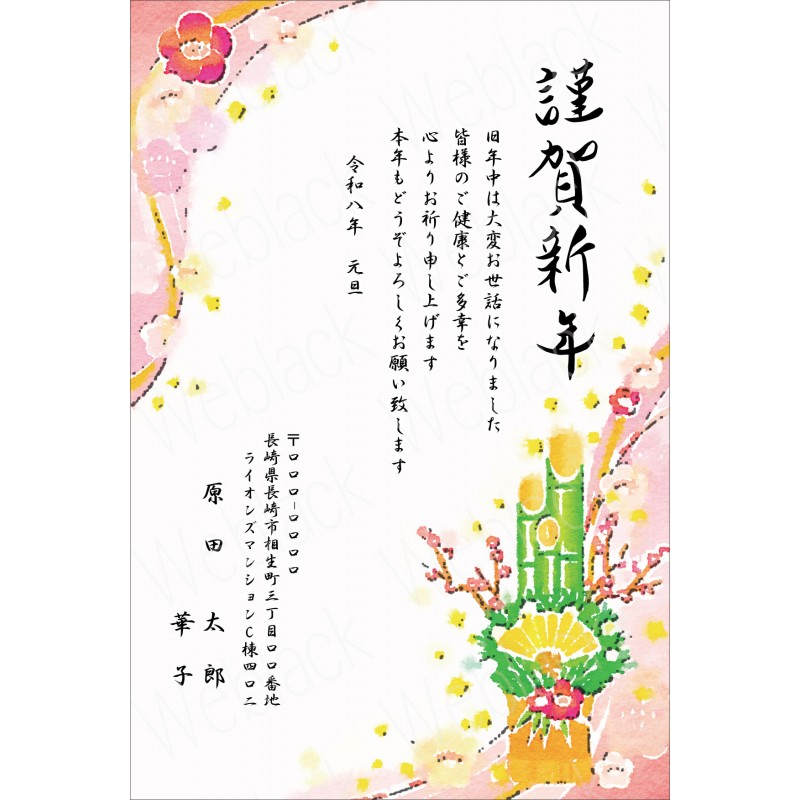 謹賀新年
旧年中は大変お世話になりました
皆様のご健康とご多幸を
心よりお祈り申し上げます
本年もどうぞよろしくお願い致します
令和八年 元旦
〒□□□-□□□□
長崎県長崎市相生町三丁目□□番地
ライオンズマンションC棟四〇二
原田 太郎
華子
Weblack